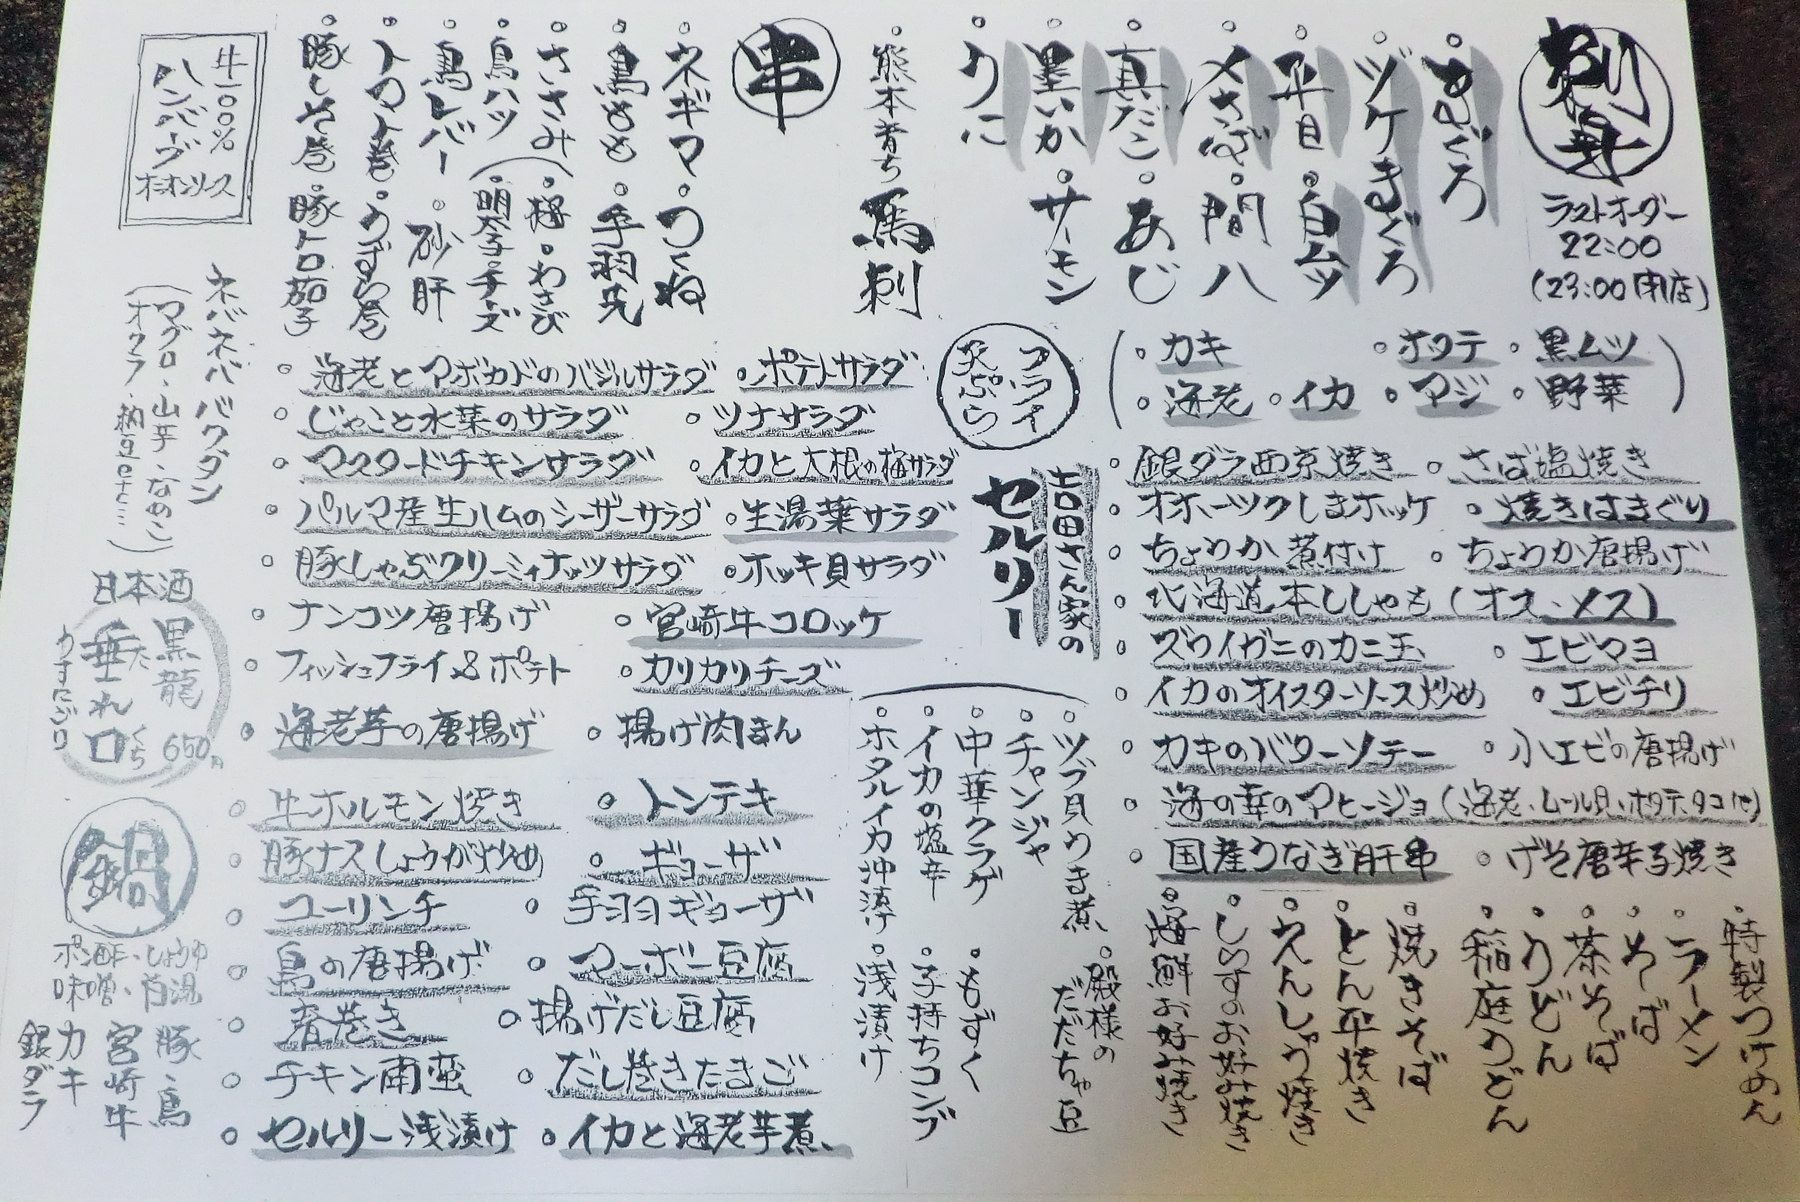 刺身
ラストオーダー
22:00
(23:00閉店)
まぐろ
ヅケまぐろ
平目
白ムツ
〆さば
間八
真だこ
あじ
黒いか
サーモン
うに
熊本育ち 馬刺
串
ネギマ
つくね
鳥もも
手羽先
ささみ(梅・わさび
明太子・チーズ
鳥ハツ
鳥レバー
砂肝
トマト巻
うずら巻
豚しそ巻
豚トロ茄子
牛100%
ハンバーグ
オニオンソース
フライ
天ぷら
カキ ホタテ 黒ムツ
海老 イカ アジ 野菜
銀ダラ西京焼き さば塩焼き
オホーツクしまホッケ 焼きはまぐり
ちょうか煮付け ちょうか唐揚げ
北海道本ししゃも(オス、メス)
ズワイガニのカニ玉 エビマヨ
イカのオイスターソース炒め エビチリ
カキのバターソテー 小エビの唐揚げ
海の幸のアヒージョ(海老、ムール貝、ホタテ、タコ他)
国産うなぎ肝串 げそ唐辛子焼き
特製つけめん
ラーメン
そば
茶そば
うどん
稲庭うどん
焼きそば
とん平焼き
えんしゅう焼き
しらすのお好み焼き
海鮮お好み焼き
吉田さん家の
セルリー
ツブ貝うま煮
殿様のだだちゃ豆
チャンジャ
中華クラゲ
もずく
イカの塩辛
子持ちコンブ
ホタルイカ沖漬け
浅漬け
海老とアボカドのバジルサラダ ポテトサラダ
じゃこと水菜のサラダ ツナサラダ
マスタードチキンサラダ イカと大根の梅サラダ
パルマ産生ハムのシーザーサラダ 生湯葉サラダ
豚しゃぶクリーミィナッツサラダ ホッキ貝サラダ
ナンコツ唐揚げ 宮崎牛コロッケ
フィッシュフライ&ポテト カリカリチーズ
海老芋の唐揚げ 揚げ肉まん
牛ホルモン焼き トンテキ
豚ナスしょうが炒め ギョーザ
ユーリンチ 手羽ギョーザ
鳥の唐揚げ マーボー豆腐
春巻き 揚げだし豆腐
チキン南蛮 だし巻きたまご
セルリー浅漬け イカと海老芋煮
ネバネババクダン
(マグロ、山芋、なめこ
オクラ、納豆etc…)
日本酒
黒龍
垂れ口
たれくち
うすにごり
650円
鍋
ポン酢・しょうゆ
味噌・白湯
豚・鳥
宮崎牛
カキ
銀ダラ